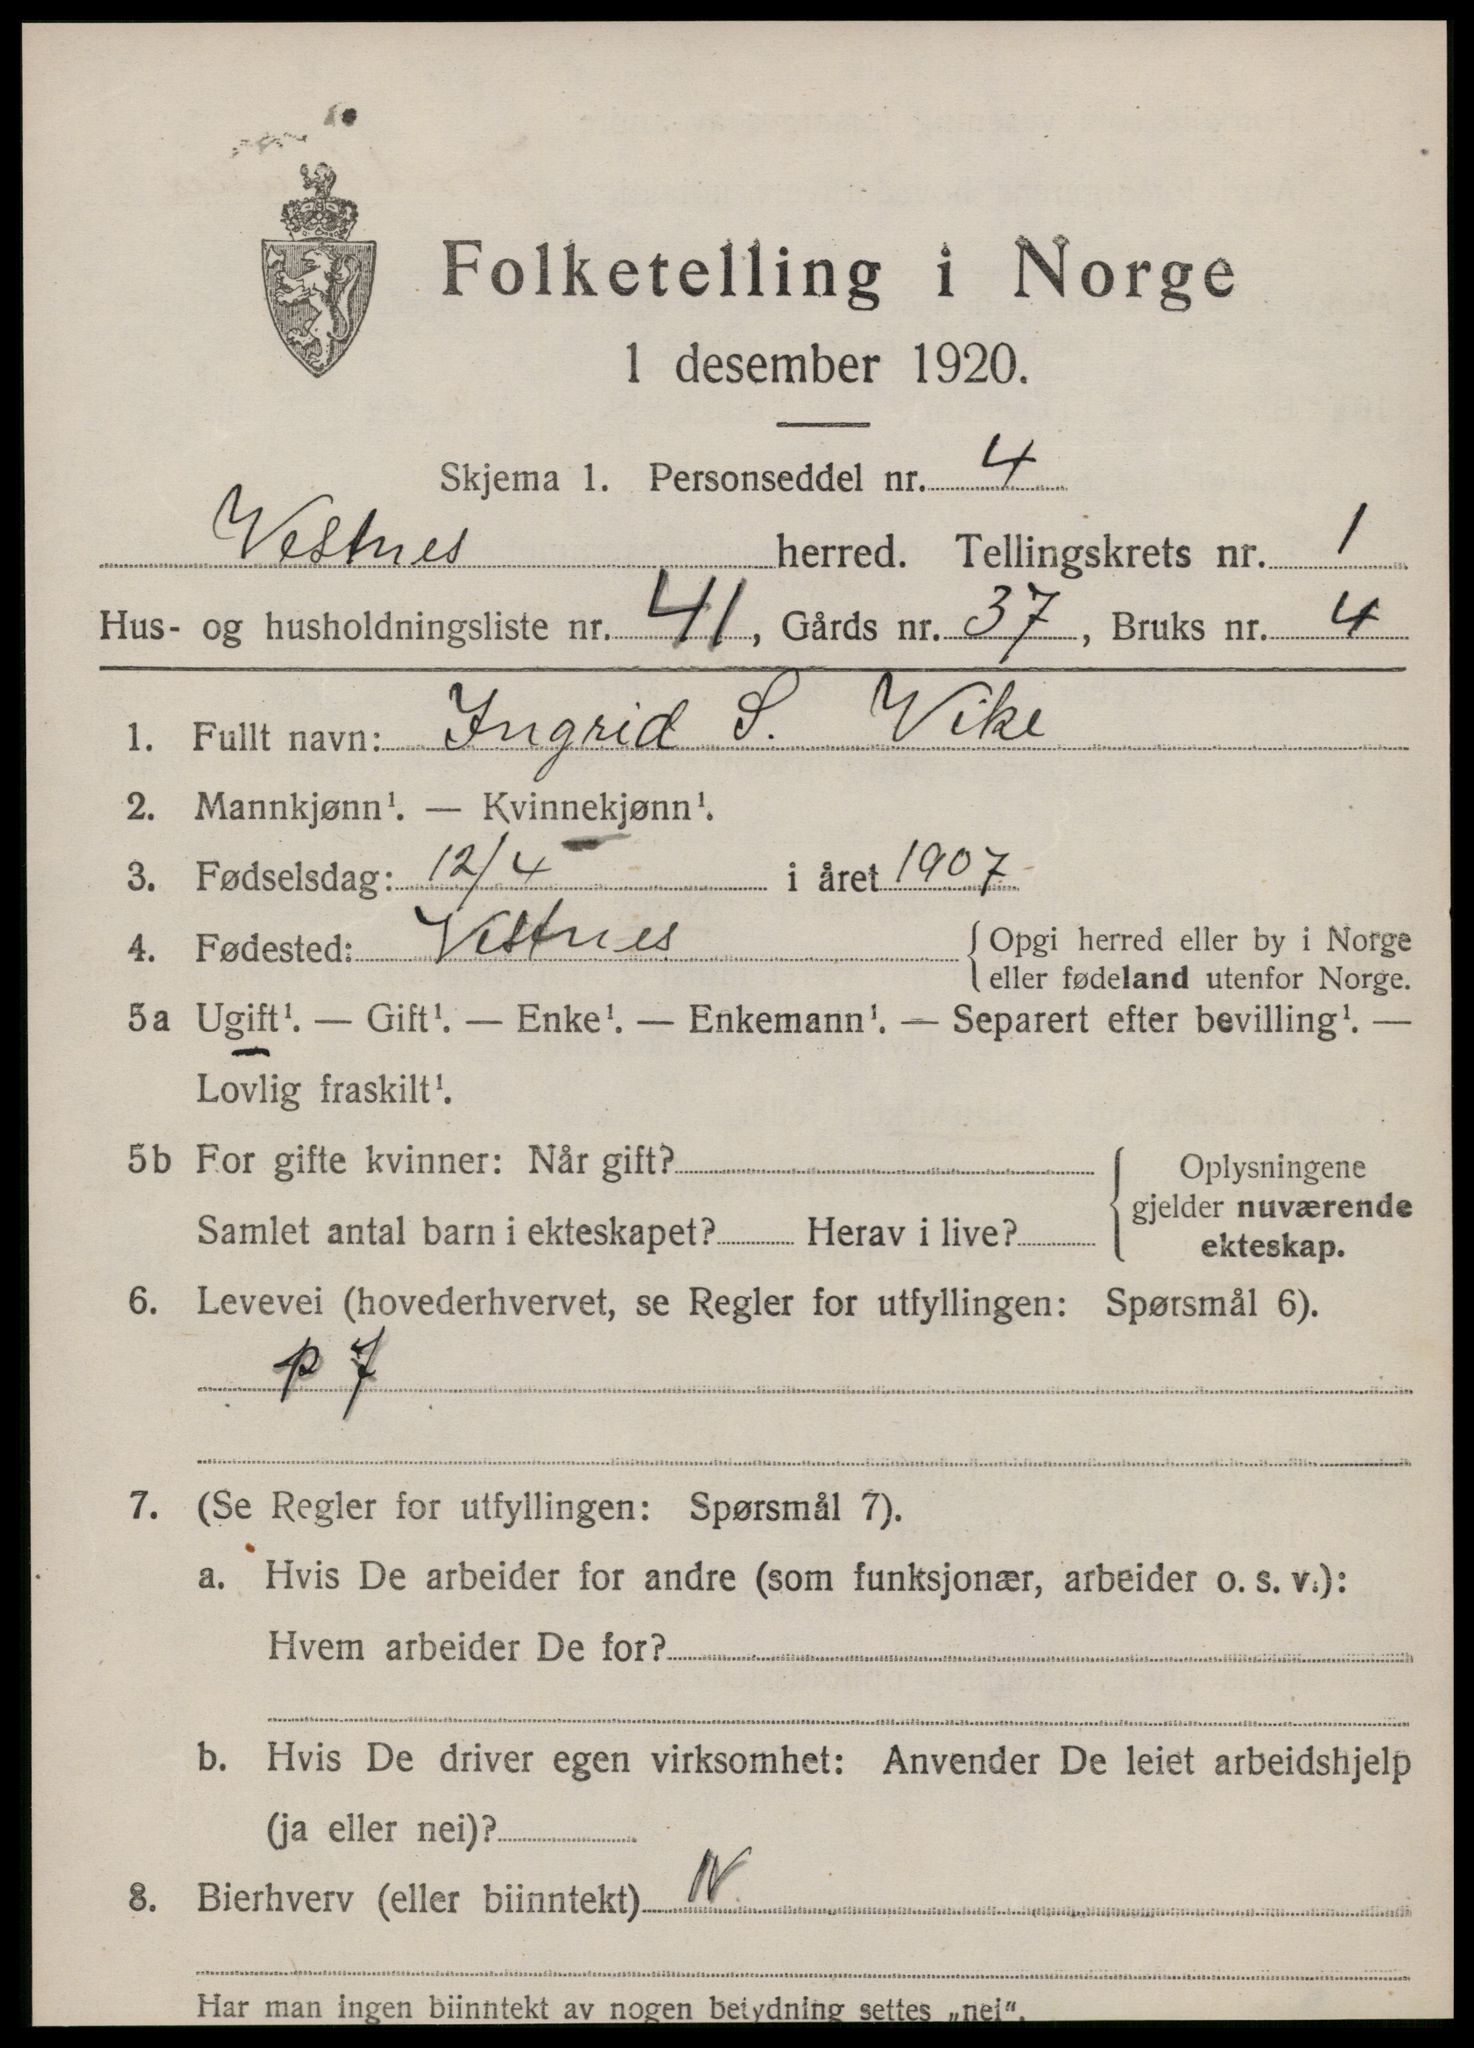 Folketelling i Norge
1 desember 1920.
Skjema 1. Personseddel nr. 4
Vestnes herred. Tellingskrets nr. 1
Hus- og husholdningsliste nr. 41, Gårds nr. 37, Bruks nr. 4
1. Fullt navn: Ingrid S. Vike
2. Mannkjønn¹. — Kvinnekjønn¹.
3. Fødselsdag: 12/4 i året 1907
4. Fødested: Vestnes {Opgi herred eller by i Norge
eller fødeland utenfor Norge.
5a Ugift¹. — Gift¹. — Enke¹. — Enkemann¹. — Separert efter bevilling¹. —
Lovlig fraskilt¹.
5b For gifte kvinner: Når gift?
Samlet antal barn i ekteskapet? Herav i live?
Oplysningene
gjelder nuværende
ekteskap.
6. Levevei (hovederhvervet, se Regler for utfyllingen: Spørsmål 6).
p 7
7. (Se Regler for utfyllingen: Spørsmål 7).
a. Hvis De arbeider for andre (som funksjonær, arbeider o. s. v.):
Hvem arbeider De for?
b. Hvis De driver egen virksomhet: Anvender De leiet arbeidshjelp
(ja eller nei)?
8. Bierhverv (eller biinntekt) N
Har man ingen biinntekt av nogen betydning settes „nei“.